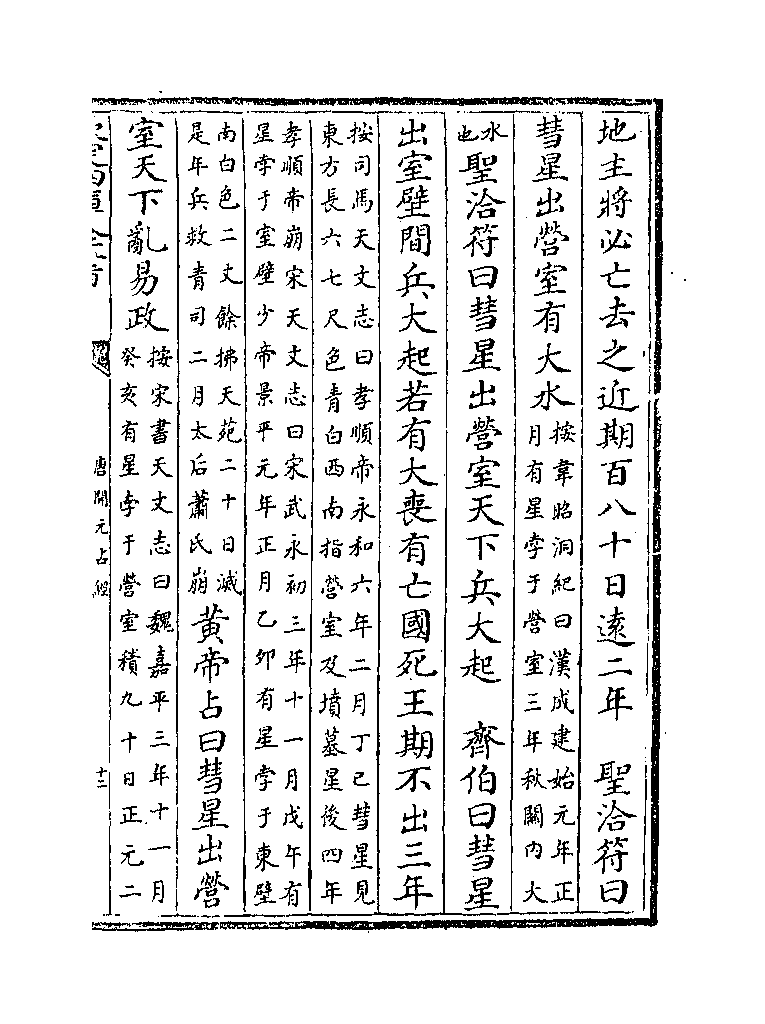 地主將必亡去之近期百八十日遠二年　聖洽符曰
彗星出營室有大水按韋昭洞紀曰漢成建始元年正
月有星孛于營室三年秋關内大
水也聖洽符曰彗星出營室天下兵大起　齊伯曰彗星
出室壁間兵大起若有大喪有亡國死王期不出三年
按司馬天文志曰孝順帝永和六年二月丁巳彗星見
東方長六七尺色青白西南指營室及墳墓星後四年
孝順帝崩宋天文志曰宋武永初三年十一月戊午有
星孛于室壁少帝景平元年正月乙卯有星孛于東壁
南白色二丈餘拂天苑二十日滅
是年兵救青司二月太后蕭氏崩黃帝占曰彗星出營
室天下亂易政按宋書天文志曰魏嘉平三年十一月
癸亥有星孛于營室積九十日正元二
唐開元占經
十二